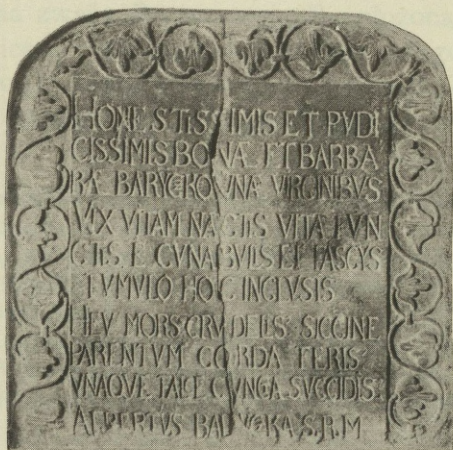 HONESTISSIMIS ET PVDI
CISSIMIS BONÆ ET BARBA
RÆ BARYCKOVNÆ VIRGINIBUS
VIX VITAM NACTIS VITA FUN
CTIS E CUNABULIS ET FASCYS
TUMULO HOC INCLUSIS
HEV MORS CRVDELIS SICCINE
PARENTUM CORDA FERIS
UNAQVE FALCE CUNCTA SUCCIDIS
ALBERTVS BARYCKA S.R.M